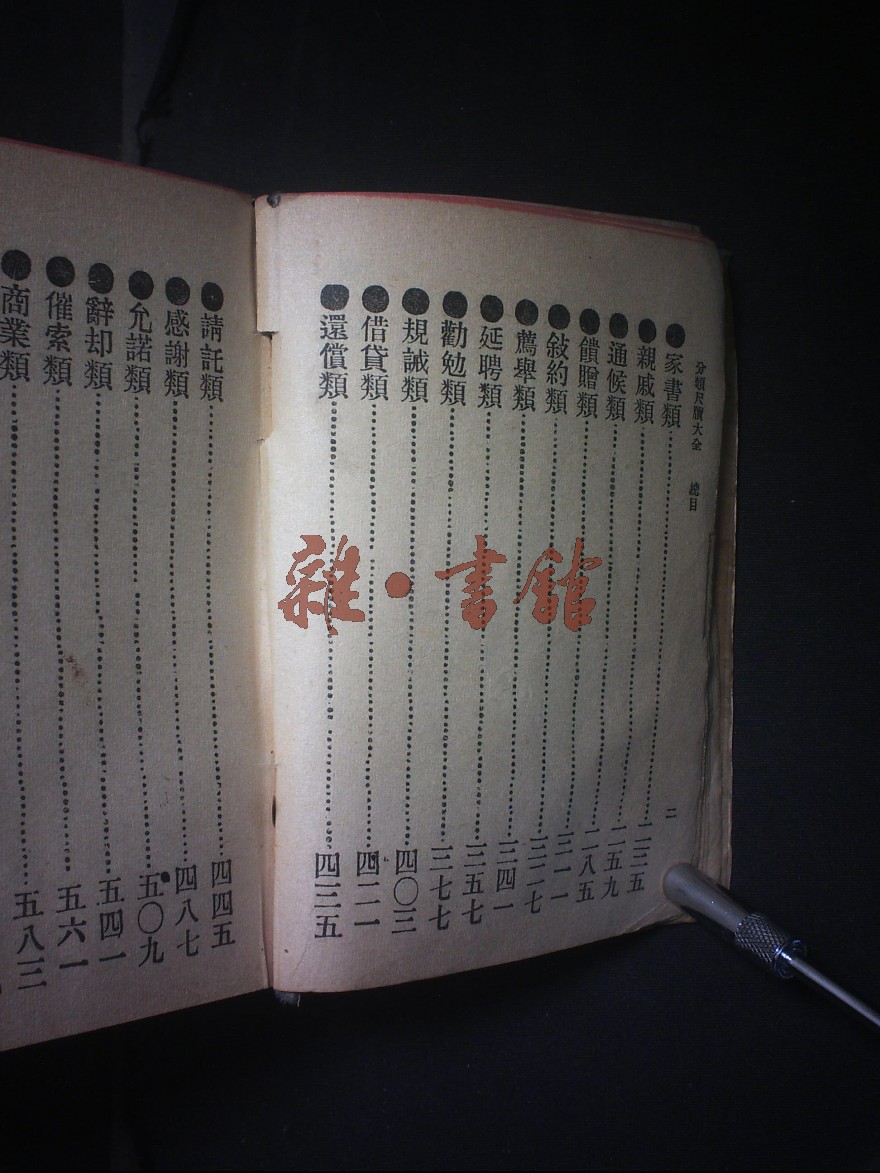 分類尺牘大全 總目 二
家書類 二三五
親戚類 二五九
通候類 二八五
饋贈類 三一一
敍約類 三二七
薦舉類 三四一
延聘類 三五七
勸勉類 三七七
規誡類 四〇三
借貸類 四二一
還償類 四三五
請託類 四四五
感謝類 四八七
允諾類 五〇九
辭却類 五四一
催索類 五六一
商業類 五八三
雜·書館